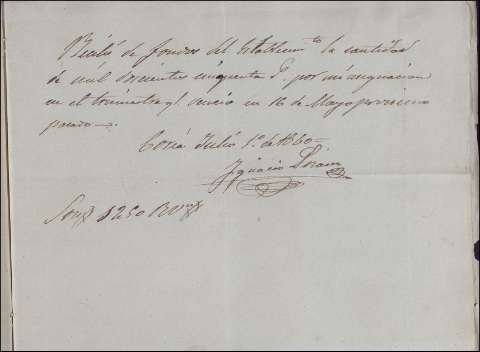 Recibí de fondos del establecim.to la cantidad
de mil doscientos cincuenta r.s por mi asignacion
en el trimestre q.e vencio en 16 de Mayo proximo
pasado.
Coria Julio 1.º de 1860
Ignacio
Son 1250 R.s